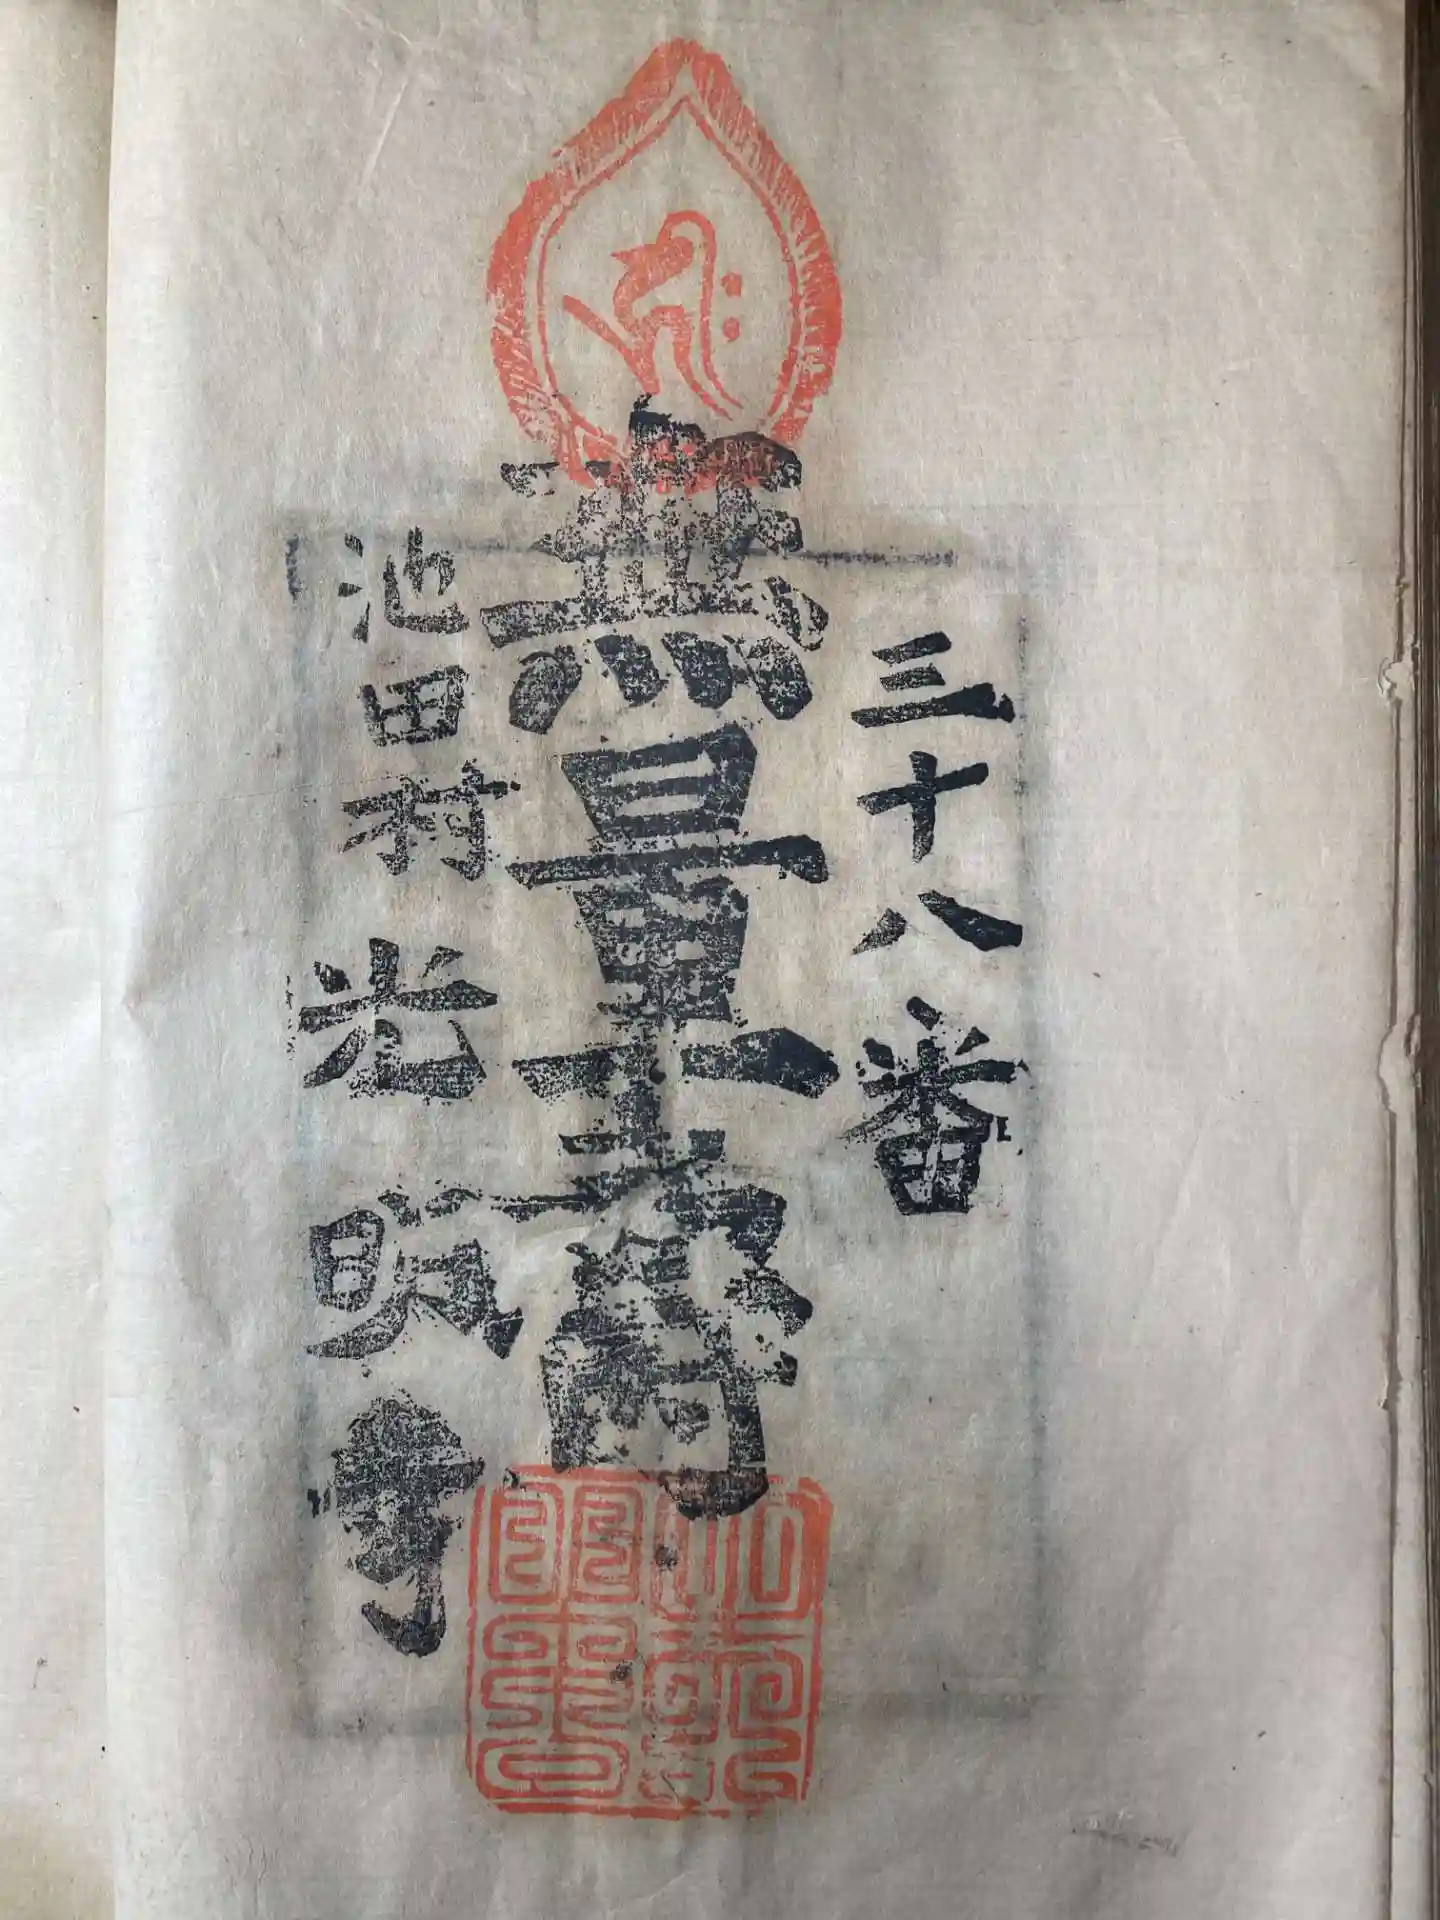 三十八番
無量壽
池田村 光明寺